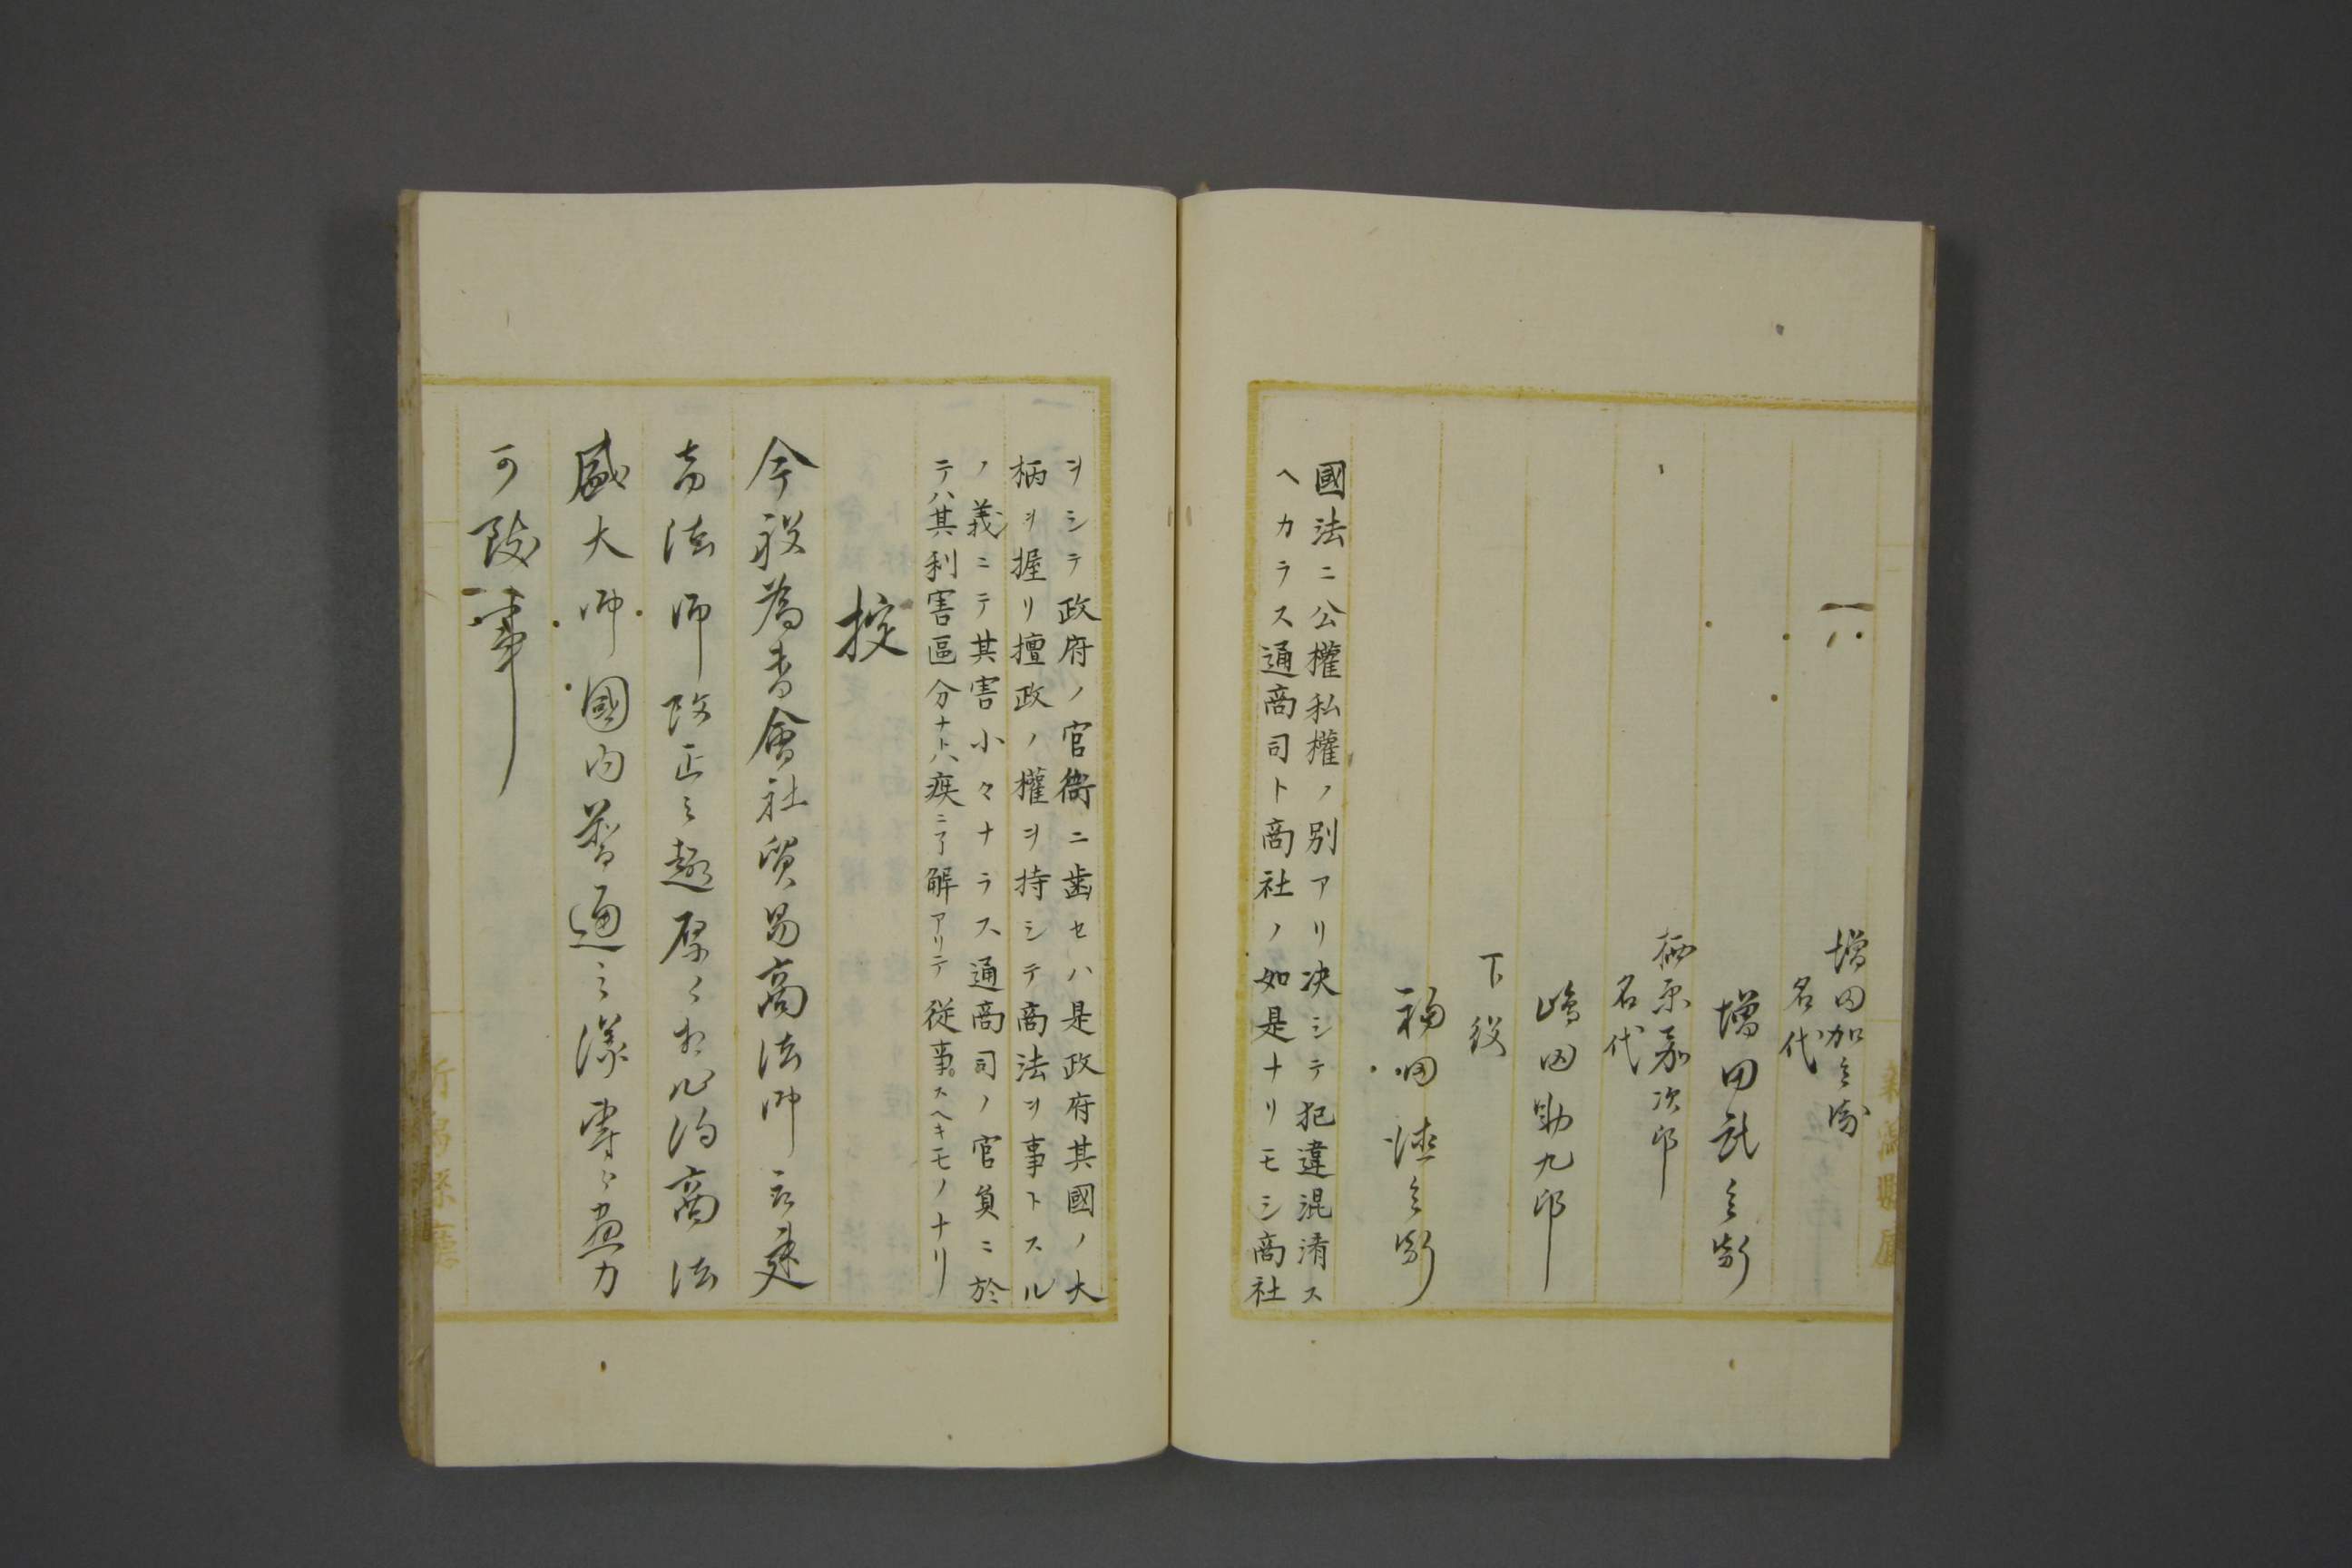 増田加之㔟
名代
増田 之𫝑
栖原嘉次郎
名代
嶋田助九郎
下役
福田 之
國法ニ公權私權ノ別アリ决シテ犯違混淆ス
ヘカラス通商司ト商社ノ如是ナリモシ商社
ヲシテ政府ノ官衙ニ歯セハ是政府其國ノ大
柄ヲ握リ擅政ノ權ヲ持シテ商法ヲ事トスル
ノ義ニテ其害小々ナラス通商司ノ官員ニ於
テハ其利害區分ナトハ疾ニ了解アリテ従事スヘキモノナリ
掟
今般為替會社貿易商法御取建
商法御改正之趣厚ク相心得商法
盛大御國内普通之様専ラ尽力
可致事
新潟縣廳
新潟縣廳